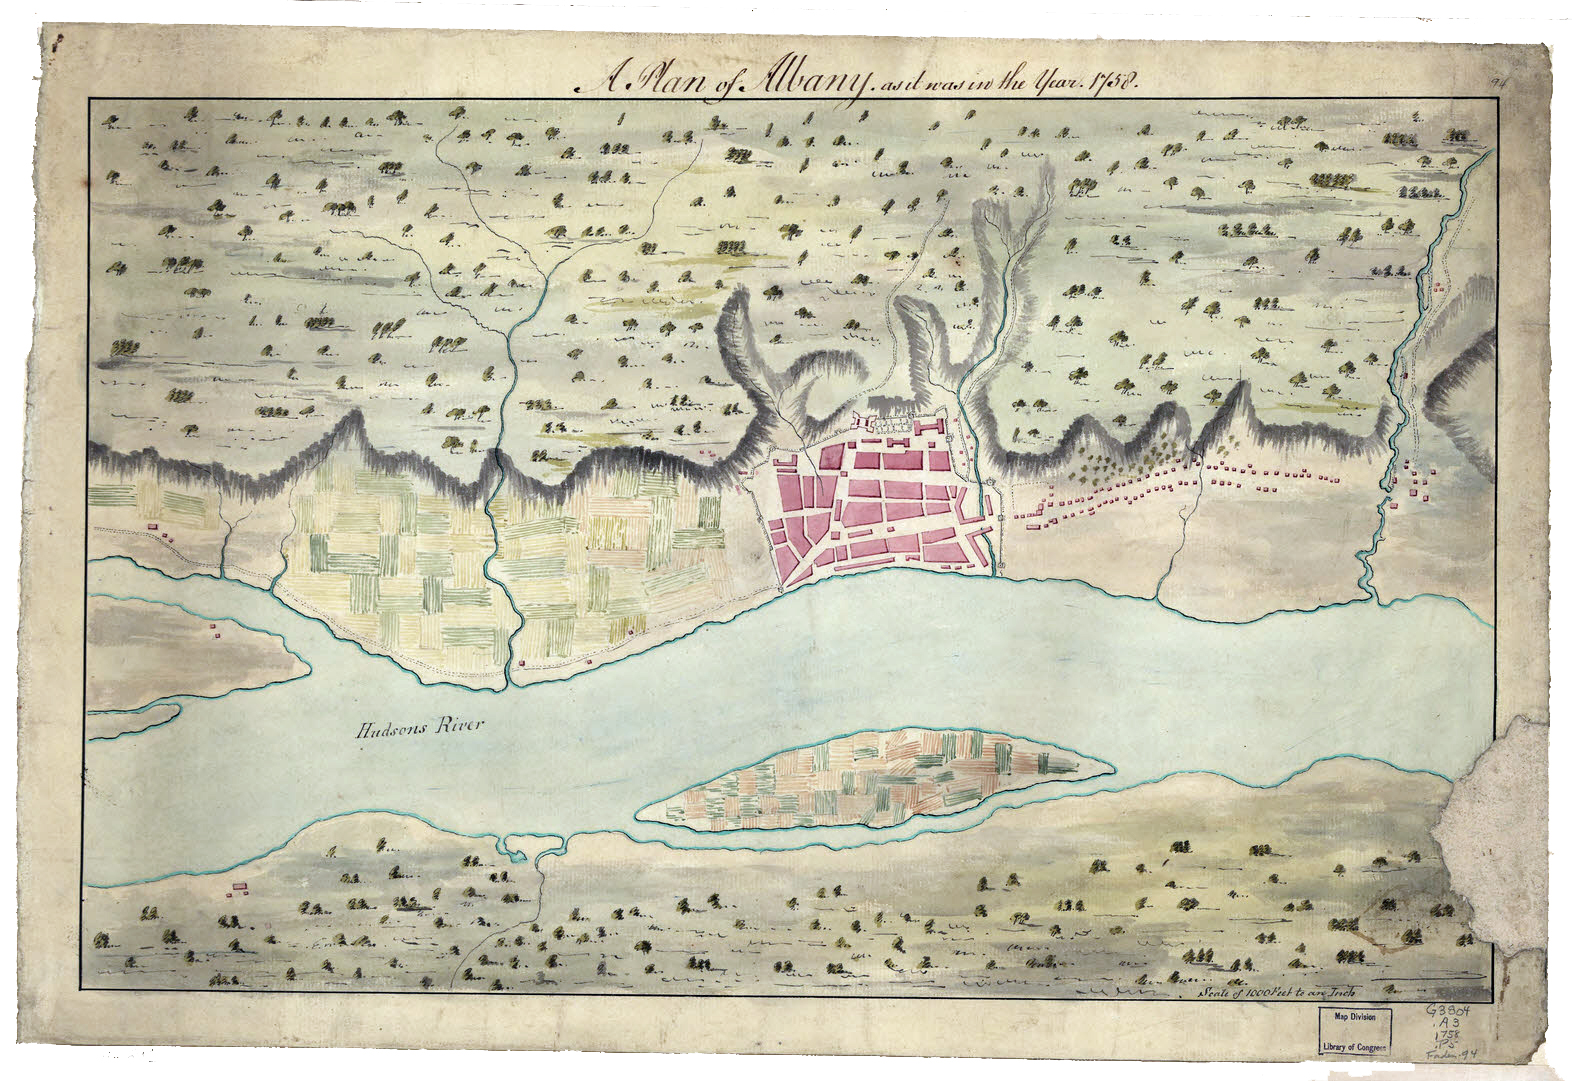 A Plan of Albany, as it was in the Year. 1758.
94
Hudsons River
Scale of 1000 Feet to an Inch
Map Division
Library of Congress
G3804
.A3
1758
.P5
Faden 94